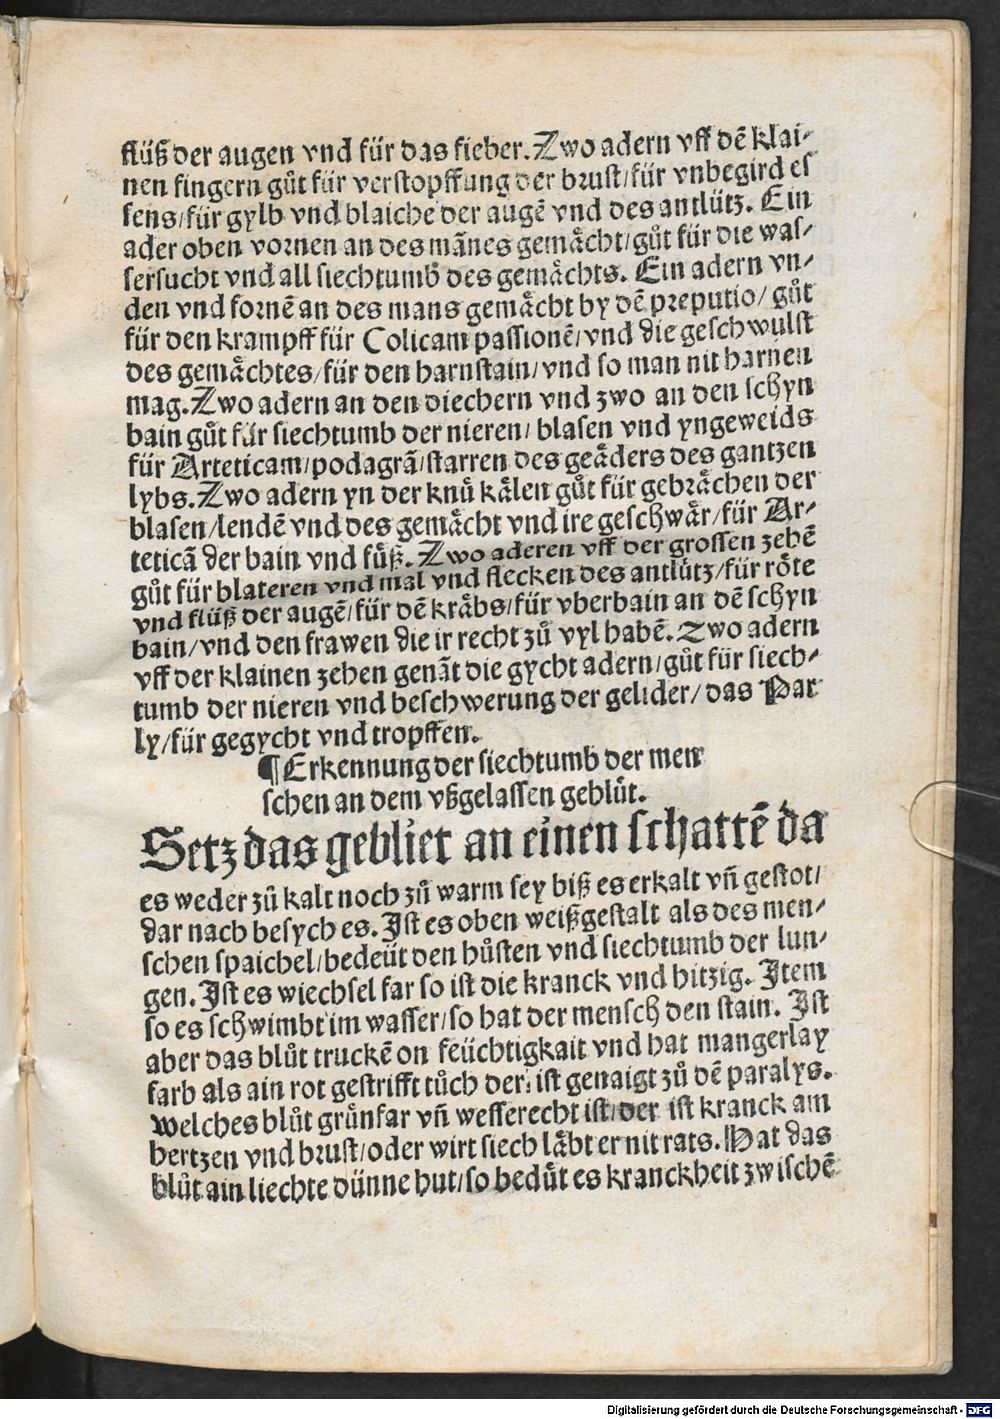 flüß der augen vnd für das fieber. Zwo adern vff dẽ klai-
nen fingern gůt für verstopffung der brust/für vnbegird es
sens/für gylb vnd blaiche der augẽ vnd des antlütz. Ein
ader oben vornen an des mãnes gemåcht/gůt für die was-
sersucht vnd all siechtumb des gemåchts. Ein adern vn-
den vnd fornẽ an des mans gemåcht by dẽ preputio/ gůt
für den krampff für Colicam passionẽ/vnd die geschwulst
des gemåchtes/für den harnstain/vnd so man nit harnen
mag. Zwo adern an den diechern vnd zwo an den schyn
bain gůt für siechtumb der nieren/ blasen vnd yngeweids
für Arteticam/podagrã/starren des geåders des gantzen
lybs. Zwo adern yn der knü kålen gůt für gebråchen der
blasen/lendẽ vnd des gemåcht vnd ire geschwår/für Ar-
teticã der bain vnd füß. Zwo aderen vff der grossen zehẽ
gůt für blateren vnd mal vnd flecken des antlütz/für röte
vnd flüß der augẽ/für dẽ kråbs/für vberbain an dẽ schyn
bain/vnd den frawen die ir recht zů vyl habẽ. Zwo adern
vff der klainen zehen genãt die gycht adern/gůt für siech-
tumb der nieren vnd beschwerung der gelider/ das Par
ly/für gegycht vnd tropffen.
¶ Erkennung der siechtumb der men
schen an dem vßgelassen geblüt.
Setz das gebliet an einen schattẽ da
es weder zů kalt noch zů warm sey biß es erkalt vñ gestot/
dar nach besych es. Ist es oben weißgestalt als des men-
schen spaichel/bedeüt den hůsten vnd siechtumb der lun-
gen. Ist es wiechsel far so ist die kranck vnd hitzig. Item
so es schwimbt im wasser/so hat der mensch den stain. Ist
aber das blůt truckẽ on feüchtigkait vnd hat mangerlay
farb als ain rot gestrifft tůch der ist genaigt zů dẽ paralys.
Welches blůt grünfar vñ wesserecht ist/der ist kranck am
hertzen vnd brust/oder wirt siech låbt er nit rats. Hat das
blůt ain liechte dünne hut/so bedüt es kranckheit zwischẽ
Digitalisierung gefördert durch die Deutsche Forschungsgemeinschaft - DFG